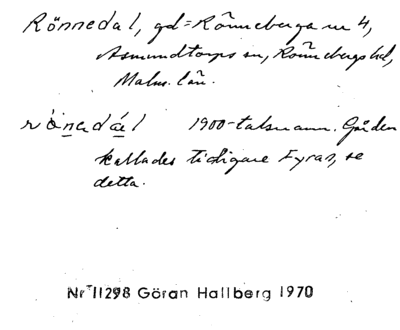 Rönnedal, gd = Rönneberga nr 4,
Asmundtorps sn, Rönnebergs hd,
Malm. län.
rònadáel 1900-talsnamn. Gården
kallades tidigare Fyran, se
detta.
Nr 11298 Göran Hallberg 1970